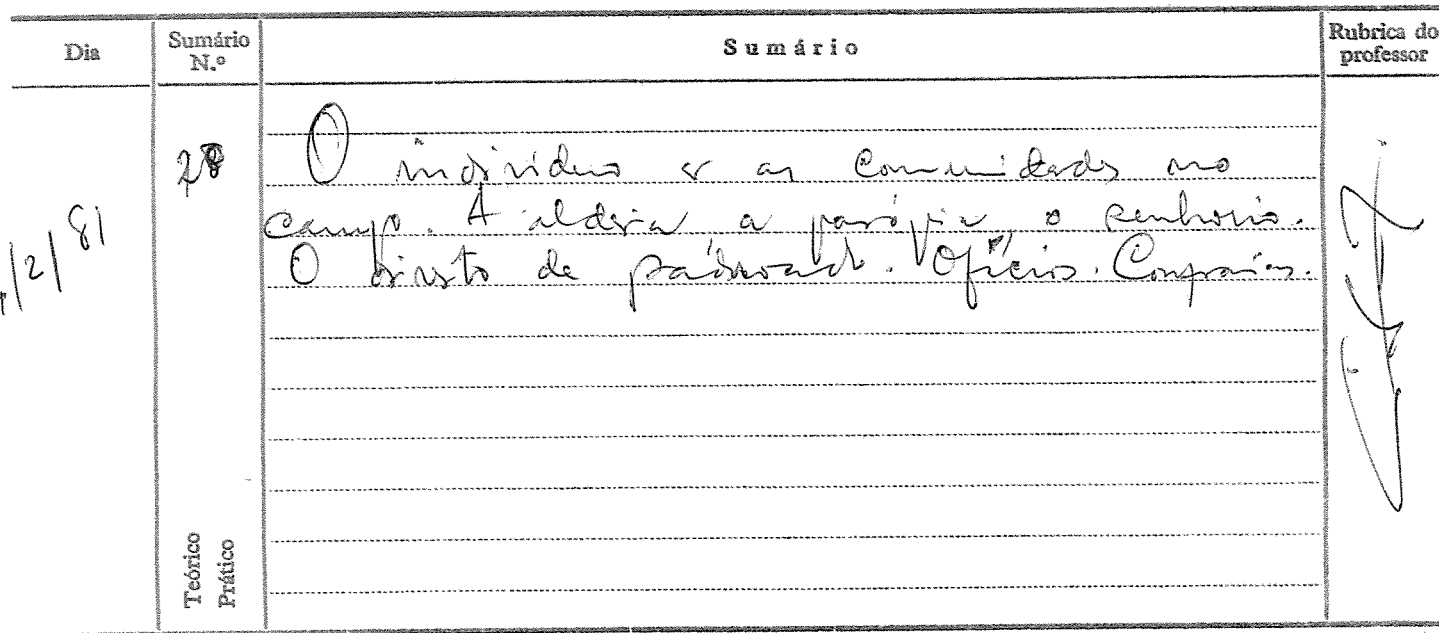 Dia Sumário N.º Sumário Rubrica do professor
/2/81
28
O indivíduo e as Comunidades no
campo. A aldeia a paróquia, o senhorio.
O direito de padroado. Ofícios. Confrarias.
Teórico
Prático